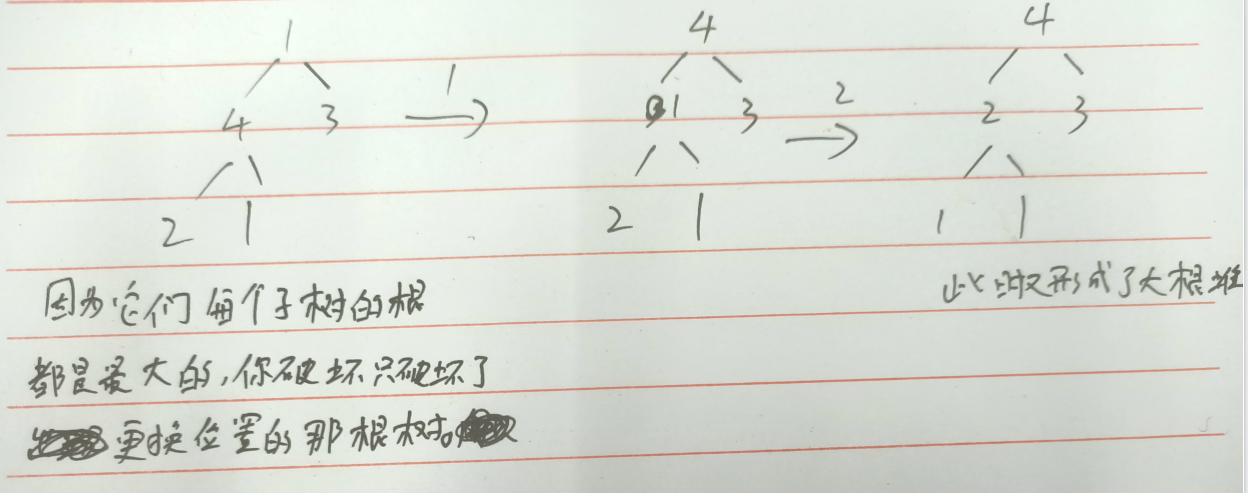 1 4 4
4 3 1→ 1 3 2→ 2 3
2 1 2 1 1 1
此时又形成了大根堆
因为它们每个子树的根
都是最大的,你破坏只破坏了
更换位置的那根树。